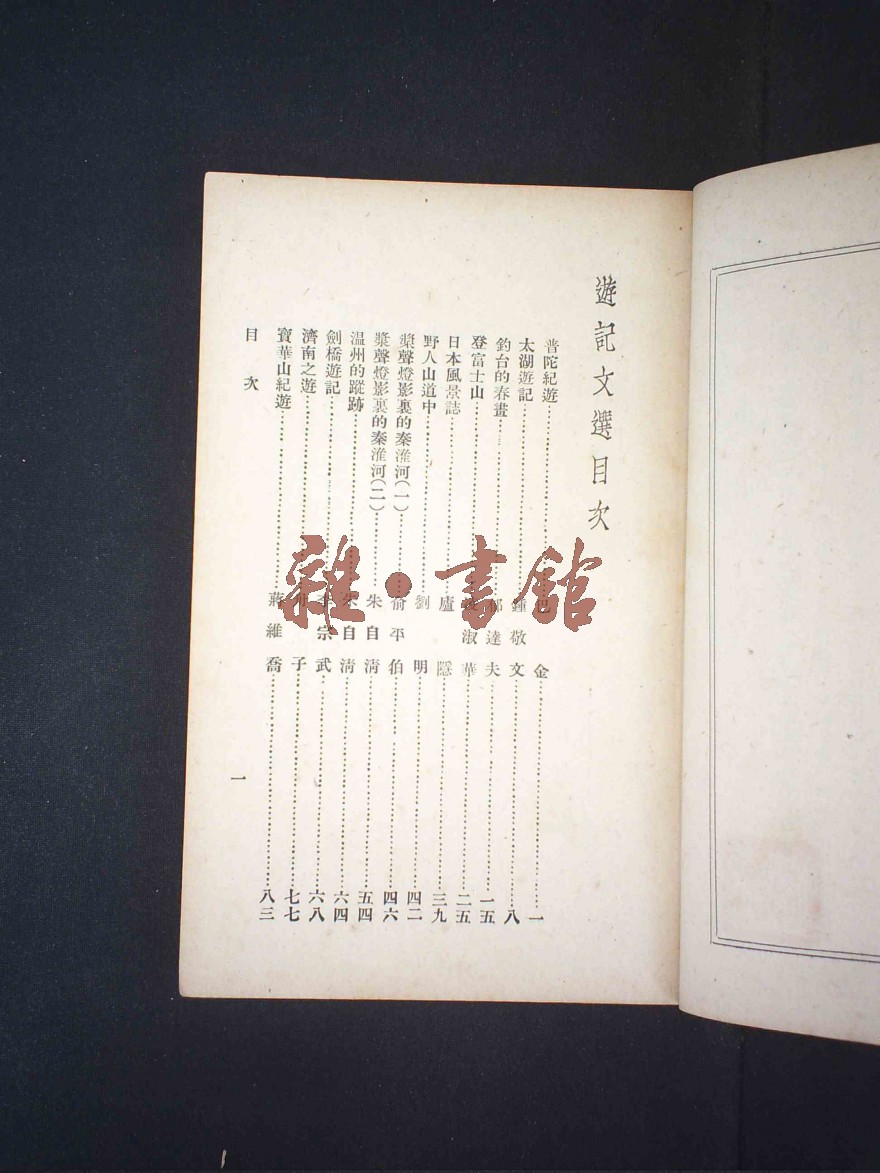 遊記文選目次
普陀紀遊……巴金……一
太湖遊記……鍾敬文……八
釣台的春晝……郁達夫……一五
登富士山……淑華……二五
日本風景誌……廬隱……三九
野人山道中……劉明……四二
槳聲燈影裏的秦淮河(一)……俞平伯……四六
槳聲燈影裏的秦淮河(二)……朱自淸……五四
温州的蹤跡……朱自淸……六四
劍橋遊記……宗武……六八
濟南之遊……子……七七
寶華山紀遊……蔣維喬……八三
目次
一
雜·書館